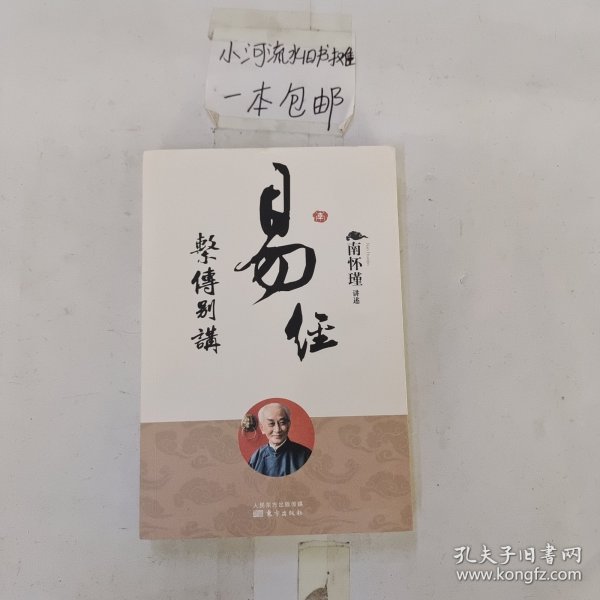 小河流水旧书摊
一本包邮
易
經
繫傳別講
南怀瑾
讲述
人民东方出版传媒
东方出版社
孔夫子旧书网
www.kongfz.com